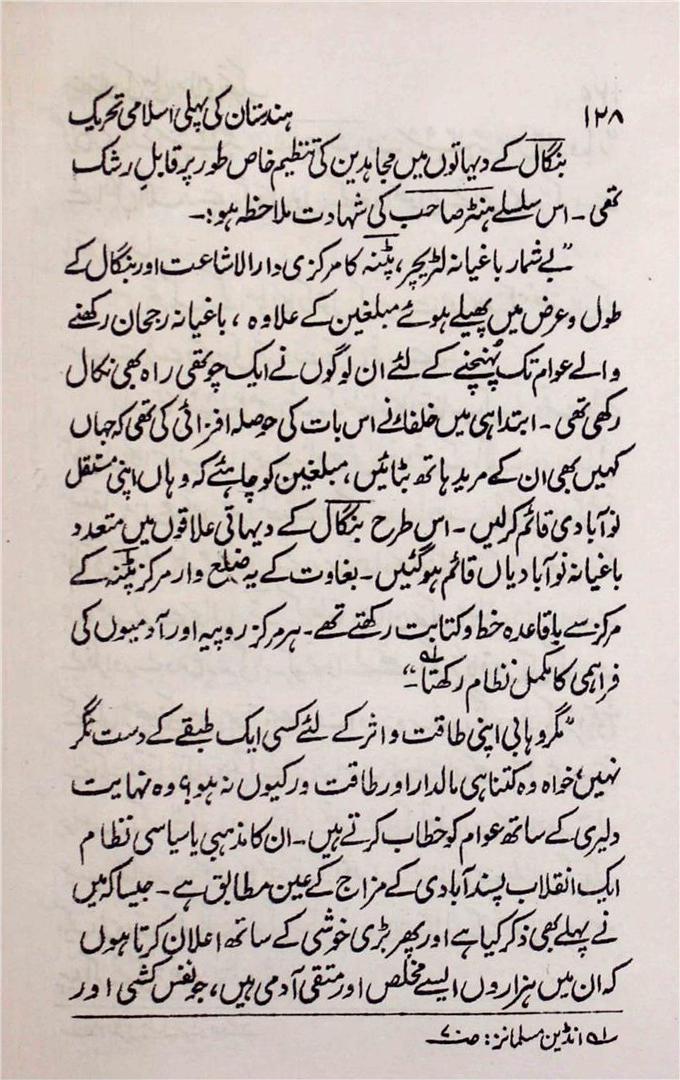 ۱۲۸ ہندستان کی پہلی اسلامی تحریک
بنگال کے دیہاتوں میں مجاہدین کی تنظیم خاص طور پر قابلِ رشک
تھی ۔ اس سلسلے ہنٹر صاحب کی شہادت ملاحظہ ہو :۔
”بے شمار باغیانہ لٹریچر، پٹنہ کا مرکزی دارالاشاعت اور بنگال کے
طول و عرض میں پھیلے ہوئے مبلغین کے علاوہ ، باغیانہ رجحان رکھنے
والے عوام تک پہنچنے کے لئے ان لوگوں نے ایک چوتھی راہ بھی نکال
رکھی تھی ۔ ابتدا ہی میں خلفاء نے اس بات کی حوصلہ افزائی کی تھی کہ جہاں
کہیں بھی ان کے مرید ہاتھ بٹائیں، مبلغین کو چاہئے کہ وہاں اپنی مستقل
نوآبادی قائم کرلیں ۔ اس طرح بنگال کے دیہاتی علاقوں میں متعدد
باغیانہ نوآبادیاں قائم ہوگئیں ۔ بغاوت کے یہ ضلع وار مرکز پٹنہ کے
مرکز سے باقاعدہ خط و کتابت رکھتے تھے ۔ ہر مرکز روپیہ اور آدمیوں کی
فراہمی کا مکمل نظام رکھتا ؁۱ ۔“
”مگر وہابی اپنی طاقت و اثر کے لئے کسی ایک طبقے کے دست نگر
نہیں، خواہ وہ کتنا ہی مالدار اور طاقت ور کیوں نہ ہو؟ وہ نہایت
دلیری کے ساتھ عوام کو خطاب کرتے ہیں ۔ ان کا مذہبی یا سیاسی نظام
ایک انقلاب پسند آبادی کے مزاج کے عین مطابق ہے ۔ جیسا کہ میں
نے پہلے بھی ذکر کیا ہے اور پھر بڑی خوشی کے ساتھ اعلان کرتا ہوں
کہ ان میں ہزاروں ایسے مخلص اور متقی آدمی ہیں، جو نفس کشی اور
؁۱ انڈین مسلمانز : ص